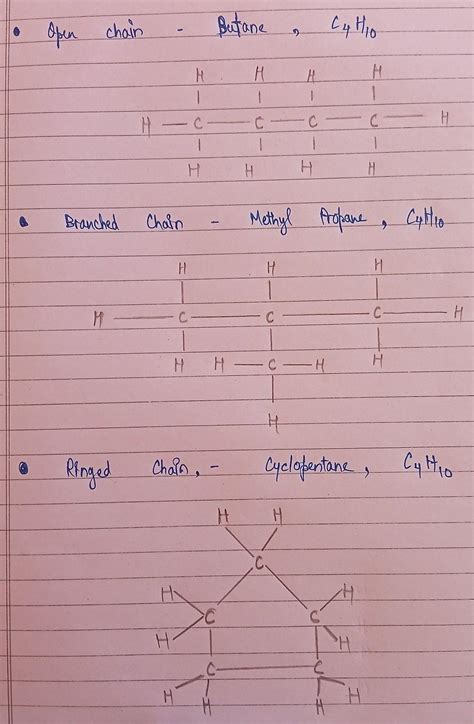 • Open chain - Butane, C4H10
H H H H
H - C - C - C - C - H
H H H H
• Branched Chain - Methyl Propane, C4H10
H H H
H - C - C - C - H
H H - C - H H
H
• Ringed Chain, - Cyclopentane, C4H10
H H
C
H H
C C
H H
C - C
H H H H